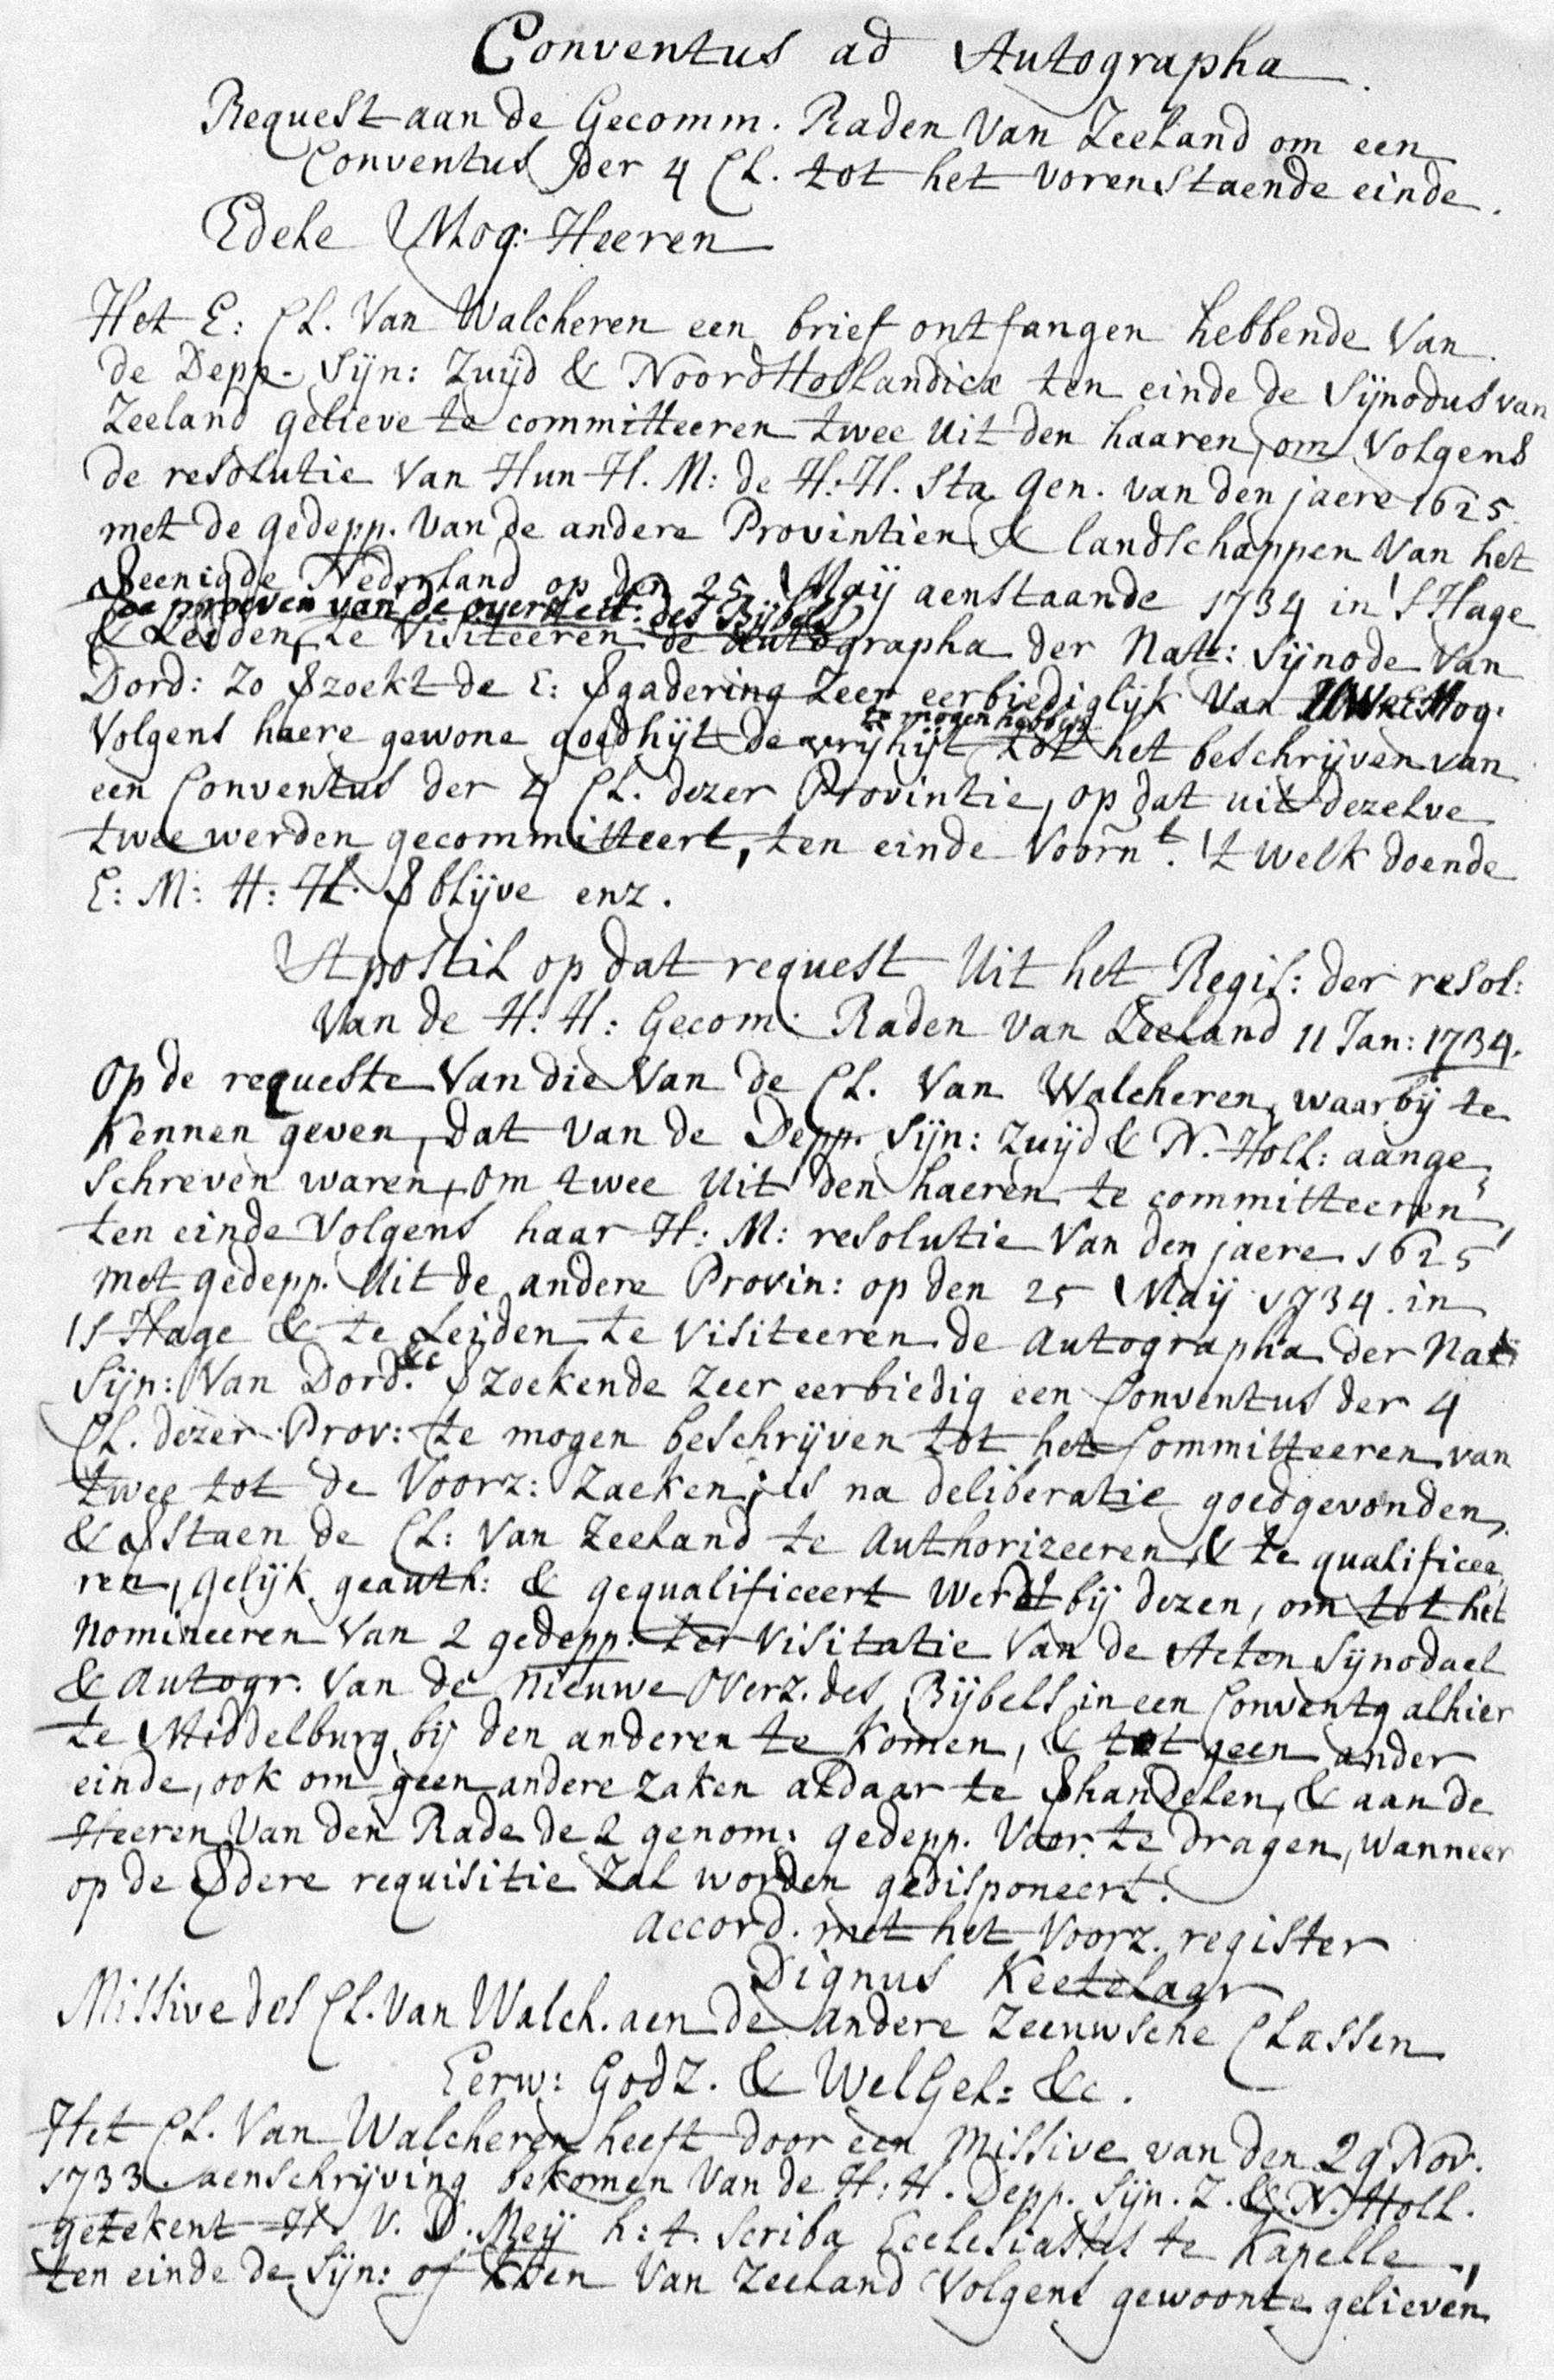 Conventus ad Autographa.
Request aan de Gecomm. Raden Van Zeeland om een
Conventus der 4 Cl. tot het vorenstaende einde.
Edele Mog: Heeren
Het E: Cl. Van Walcheren een brief ontfangen hebbende Van
de Depp. Sijn: Zuijd & NoordHollandicæ ten einde de Sijnodus van
Zeeland gelieve te committeeren twee uit den haaren, om Volgens
de resolutie Van Hun H. M: de H. H. Sta. Gen. van den jaere 1625
met de gedepp. Van de andere Provintien & landschappen Van het
Vereenigde Nederland op den 25 Maij aenstaande 1734 in 'S Hage
de proeven van de overzett: des Bijbels
& Leiden, te Visiteeren de Autographa der Nat: Sijnode Van
Dord: Zo Verzoekt de E: Vergadering Zeer eerbiediglijk Van UWE Mog.
te mogen hebben
Volgens haere gewone goedhijt de vrijhijt tot het beschrijven van
een Conventus der 4 Cl. dezer Provintie, op dat uit dezelve
twee werden gecommitteert, ten einde Voorñt. 't welk doende
E: M: H: H. Verblijve enz.
Apostil op dat request Uit het Regis: der resol:
Van de H. H: Gecom: Raden van Zeeland 11 Jan: 1734.
Op de requeste Van die Van de Cl. Van Walcheren, waarbij te
Kennen geven, dat van de Depp. Sijn: Zuijd & N. Holl: aange„
schreven waren, om twee Uit den haeren te committeeren,
ten einde Volgens haar H: M: resolutie Van den jaere 1625
met gedepp. Uit de andere Provin: op den 25 Maij 1734. in
'S Hage & te Leijden te Visiteeren de Autographa der Nat:
Sijn: Van Dord. &c Verzoekende Zeer eerbiedig een Conventus der 4
Cl. dezer Prov: te mogen beschrijven tot het Committeeren van
twee tot de Voorz: Zaeken; is na deliberatie goedgevonden,
& Verstaen de Cl: Van Zeeland te Authorizeeren & te qualificee„
ren, gelijk geauth: & gequalificeert werdt bij dezen, om tot het
Nomineeren Van 2 gedepp. ter Visitatie Van de Acten Sijnodael
& Autogr. Van de Nieuwe Overz. des Bijbels in een Conventq alhier
te Middelburg bij den anderen te Komen, & tot geen ander
einde, ook om geen andere zaken aldaar te Verhandelen, & aan de
Heeren Van den Rade de 2 genom: gedepp. Voor te dragen, Wanneer
op de Verdere requisitie Zal worden gedisponeert.
Accord. met het Voorz. register
Dignus Keetelaar
Missive des Cl. Van Walch. aen de andere Zeeuwsche Classen
Eerw: Godz. & WelGel: &c.
Het Cl. Van Walcheren heeft door een Missive van den 29 Nov.
1733. aenschrijving bekomen Van de H: H. Depp. Sijn. Z. & N. Holl.
getekent H. V. D. Meij h: t. Scriba Ecclesiastes te Kapelle,
ten einde de Sijn: of Kken Van Zeeland Volgens gewoonte gelieven